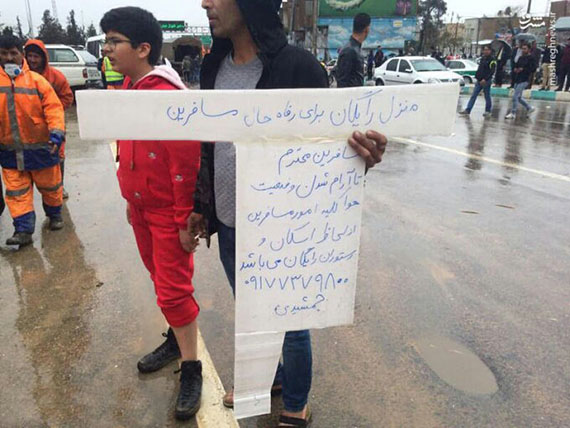 منزل رایگان برای رفاه حال مسافرین
مسافرین محترم
تا آرام شدن وضعیت
هوا کلیه امور مسافرین
از لحاظ اسکان و
رستوران رایگان می باشد
۰۹۱۷۷۳۷۹۸۰۰
جمشیدی
mashreghnews.ir